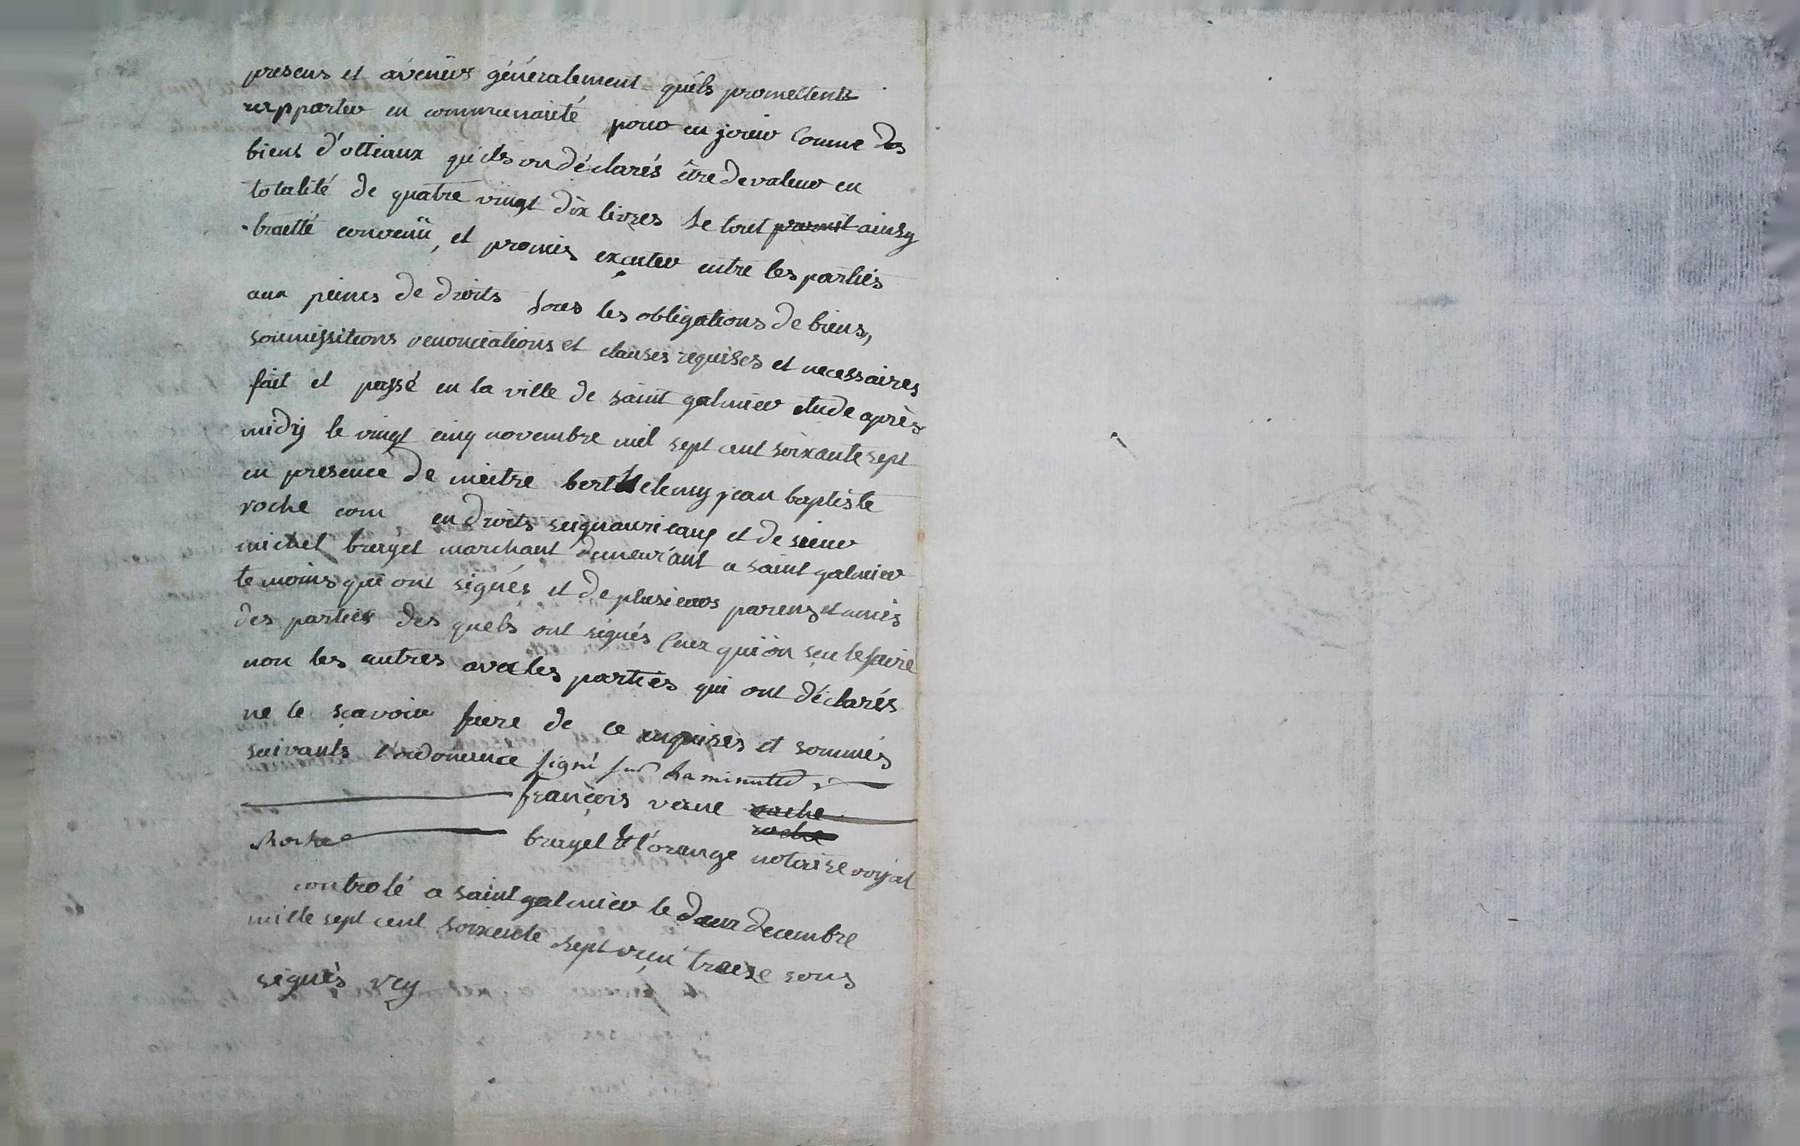 presens et avenirs généralement quils promettent
rapporter en communauté pour en jouir comme des
biens d'ottiaux qu'ils on déclarés être de valeur en
totalité de quatre vingt dix livres le tout ainsy
traetté convenü, et promis executer entre les parties
aux peines de droits sous les obligations de biens,
soumissitions renonciations et clauses requises et necessaires
fait et passé en la ville de saint galmier etude après
midy le vingt cinq novembre mil sept cent soixante sept
en presence de meitre berthelemy jean baptiste
roche com en droits seigneuriaux et de sieur
michel bruyet marchant demeurant a saint galmier
temoins qui ont signés et de plusieurs parens et amis
des parties des quels ont signés ceux qui on sçu le faire
non les autres avec les parties qui ont déclarés
ne le sçavoir faire de ce enquises et sommés
suivants l'ordonnence signé sur la minutte
françois verne roche
Roche bruyet et l'orange notaire royal
controlé a saint galmier le deux decembre
mille sept cent soixente sept reçu treise sous
signés rey